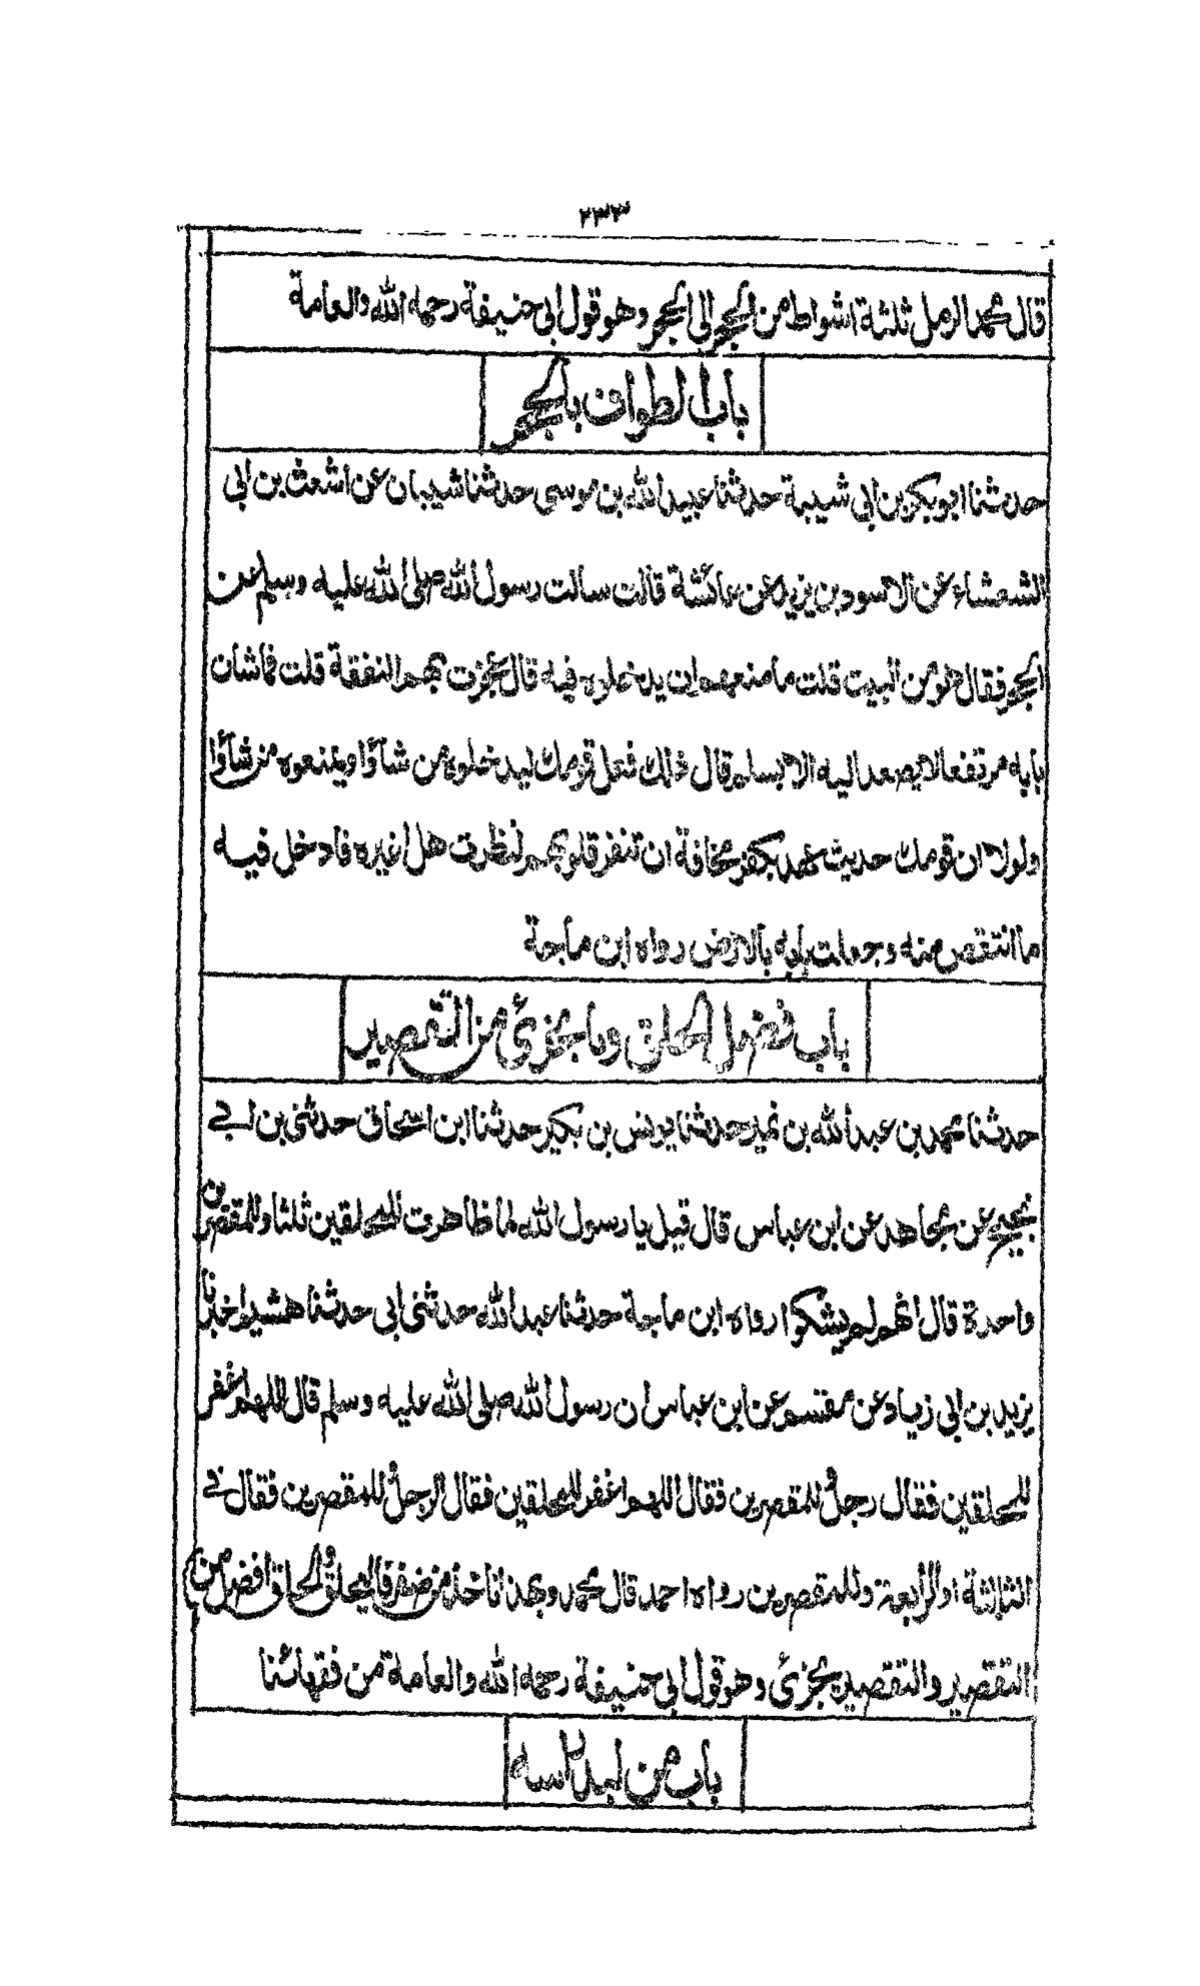 ٢٣٣
قال محمد الرمل ثلثة اشواط من الحجر الى الحجر وهو قول ابي حنيفة رحمه الله والعامة
باب الطواف بالحجر
حدثنا ابو بكر بن ابي شيبة حدثنا عبيد الله بن موسى حدثنا شيبان عن اشعث بن ابي
الشعشاء عن الاسود بن يزيد عن عائشة قالت سالت رسول الله صلى الله عليه وسلم عن
الحجر فقال هو من البيت قلت ما منعهم ان يدخلوه فيه قال عجزت بهم النفقة قلت فما شان
بابه مرتفعا لا يصعد اليه الا بسلم قال ذلك فعل قومك ليدخلوه من شاؤا ويمنعوه من شاؤا
ولولا ان قومك حديث عهد بكفر مخافة ان تنفر قلوبهم لنظرت هل اغيره فادخل فيه
ما انتقص منه وجعلت بابه بالارض رواه ابن ماجة
باب فضل الحلق وما يجزئ من التقصير
حدثنا محمد بن عبد الله بن نمير حدثنا يونس بن بكير حدثنا ابن اسحاق حدثنى بن ابي
نجيح عن مجاهد عن ابن عباس قال قيل يا رسول الله لما ظاهرت للمحلقين ثلثا وللمقصرين
واحدة قال انهم لم يشكوا رواه ابن ماجة حدثنا عبد الله حدثنى ابى حدثنا هشيم اخبرنا
يزيد بن ابي زياد عن مقسم عن ابن عباس ان رسول الله صلى الله عليه وسلم قال اللهم اغفر
للمحلقين فقال رجل وللمقصرين فقال اللهم اغفر للمحلقين فقال الرجل وللمقصرين فقال في
الثالثة او الرابعة وللمقصرين رواه احمد قال محمد وبهذا ناخذ من ضفر فليحلق والحلق افضل من
التقصير والتقصير يجزئ وهو قول ابي حنيفة رحمه الله والعامة من فقهائنا
باب من لبد راسه